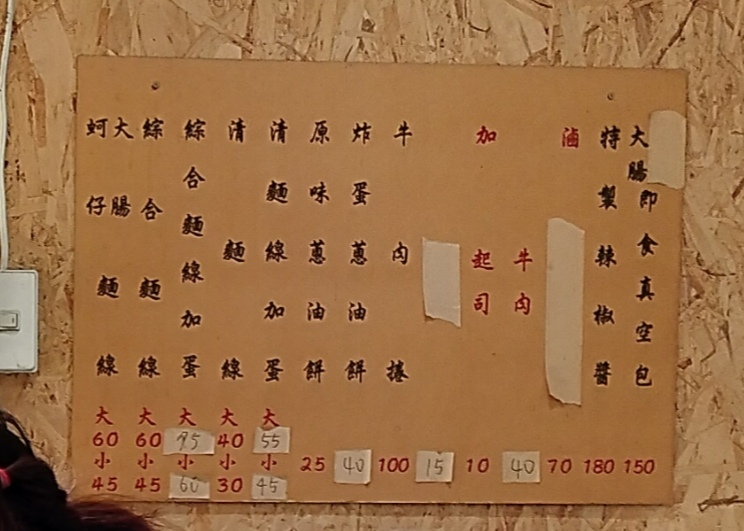 蚵仔大腸麵線
大60
小45
綜合麵線
大60
小45
綜合麵線加蛋
大75
小60
清麵線
大40
小30
清麵線加蛋
大55
小45
原味蔥油餅
25
炸蛋蔥油餅
40
牛肉捲
100
15
加
起司
10
牛肉
40
滷
70
特製辣椒醬
180
大腸即食真空包
150